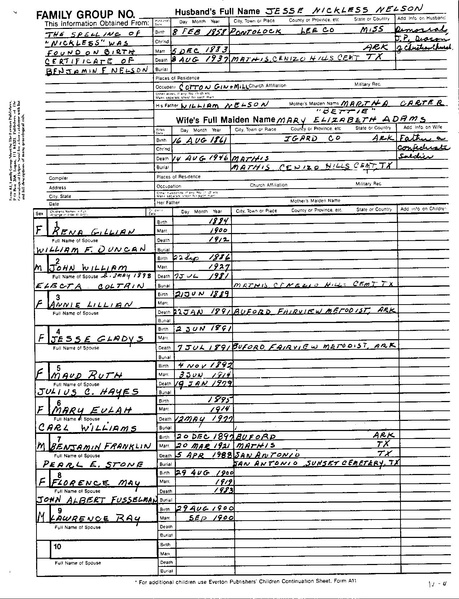 FAMILY GROUP NO.
Husband's Full Name JESSE NICKLESS NELSON
This Information Obtained From:
Day Month Year City, Town or Place County or Province, etc. State or Country Add. Info. on Husband
THE SPELLING OF
"NICKLESS" WAS
FOUND ON BIRTH
CERTIFICATE OF
BENJAMIN F NELSON
Birth 8 FEB 1858 PONTOLOCK LEE CO MISS
Chr'nd
Marr. 5 DEC 1883 ARK
Death 8 AUG 1937 MATHIS, CENIZO HILLS CEMT TX
Burial
Places of Residence
Occupation COTTON GIN & MILL Church Affiliation Military Rec.
His Father WILLIAM NELSON Mother's Maiden Name MARTHA CARTER
"BETTIE"
Wife's Full Maiden Name MARY ELIZABETH ADAMS
Day Month Year City, Town or Place County or Province, etc. State or Country Add. Info. on Wife
Birth 16 AUG 1861 IZARD CO ARK Father a
Chr'nd Confederate
Death 14 AUG 1946 MATHIS Soldier
Burial MATHIS CENIZO HILLS CEMT TX
Compiler
Places of Residence
Address
Occupation Church Affiliation Military Rec.
City, State
Date
Her Father Mother's Maiden Name
Sex
Day Month Year City, Town or Place County or Province, etc. State or Country Add. Info on Children
1
Birth 1884
F RENA GILLIAN
Marr. 1900
Full Name of Spouse
Death 1912
WILLIAM F. DUNCAN
Burial
2
Birth 22 Sep 1886
M JOHN WILLIAM
Marr. 1927
Full Name of Spouse
Death 7 JUL 1981
ELECTA COLTRIN
Burial MATHIS CENIZO HILLS CEMT TX
3
Birth 21 JUN 1889
F ANNIE LILLIAN
Marr.
Full Name of Spouse
Death 22 JAN 1891 BUFORD FAIRVIEW METODIST, ARK
Burial
4
Birth 2 JUN 1891
F JESSE GLADYS
Marr.
Full Name of Spouse
Death 7 JUL 1891 BUFORD FAIRVIEW METODIST, ARK
Burial
5
Birth 4 NOV 1892
F MAUD RUTH
Marr. 3 JUN 1914
Full Name of Spouse
Death 19 JAN 1979
JULIUS C. HAYES
Burial
6
Birth 1895
F MARY EULAH
Marr. 1914
Full Name of Spouse
Death 12 MAY 1977
CARL WILLIAMS
Burial
7
Birth 20 DEC 1897 BUFORD ARK
M BENJAMIN FRANKLIN
Marr. 20 MAR 1921 MATHIS TX
Full Name of Spouse
Death 5 APR 1988 SAN ANTONIO TX
PEARL E. STONE
Burial SAN ANTONIO SUNSET CEMETARY, TX
8
Birth 29 AUG 1900
F FLORENCE MAY
Marr. 1919
Full Name of Spouse
Death 1983
JOHN ALBERT FUSSELMAN
Burial
9
Birth 29 AUG 1900
M LAWRENCE RAY
Marr. SEP 1900
Full Name of Spouse
Death
Burial
10
Birth
Marr.
Full Name of Spouse
Death
Burial
* For additional children use Everton Publishers' Children Continuation Sheet, Form A11